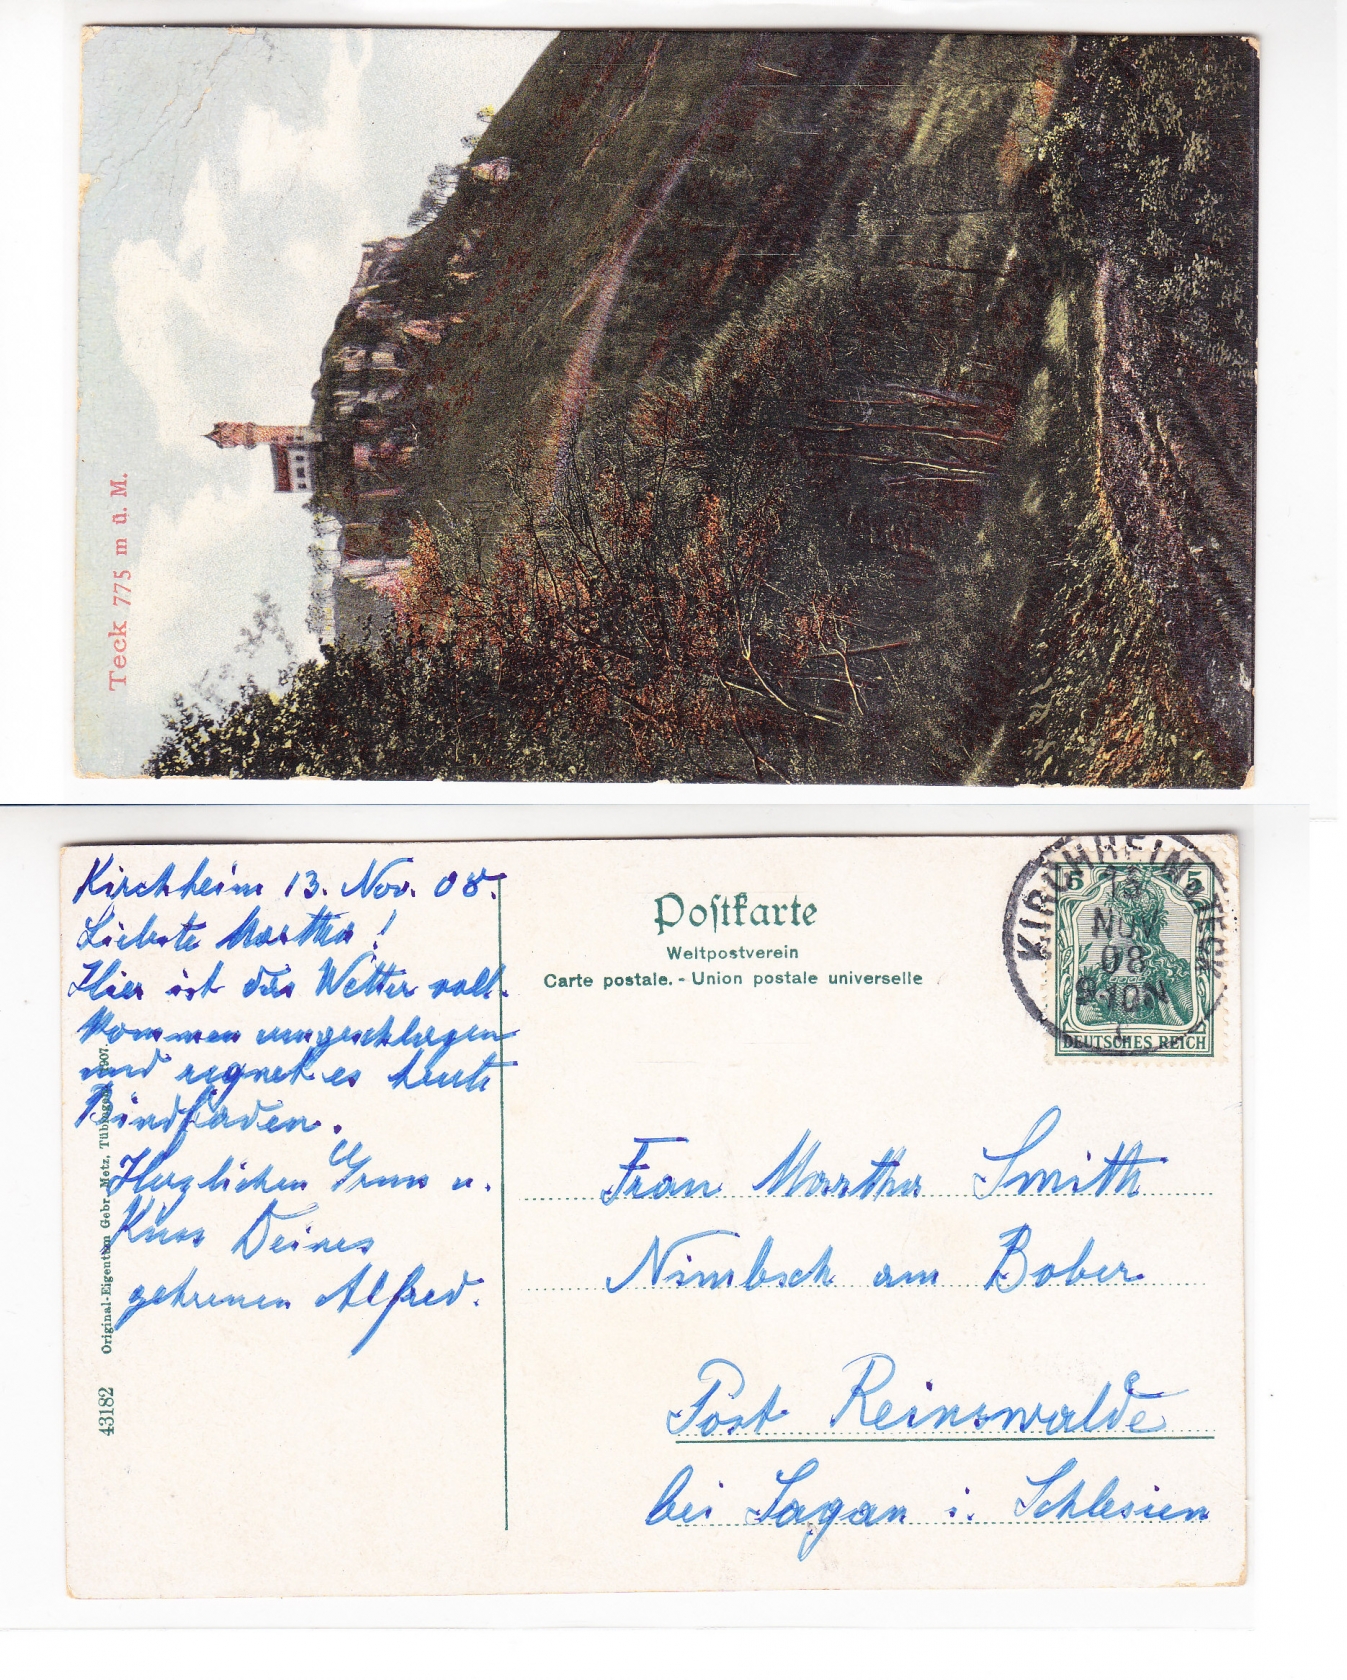 Teck 775 m ü. M.
Kirchheim 13. Nov. 08.
Liebste Martha!
Hier ist das Wetter voll-
kommen umgeschlagen
und regnet es heute
Bindfaden.
Herzlichen Gruss u.
Kuss Deines
getreuen Alfred.
43182 Original-Eigentum Gebr. Metz, Tübingen 1907.
Postkarte
Weltpostverein
Carte postale. - Union postale universelle
KIRCHHEIM TECK
13
NOV
08
5 5
DEUTSCHES REICH
Frau Martha Smith
Nimbsch am Bober
Post Reinswalde
bei Sagan i. Schlesien